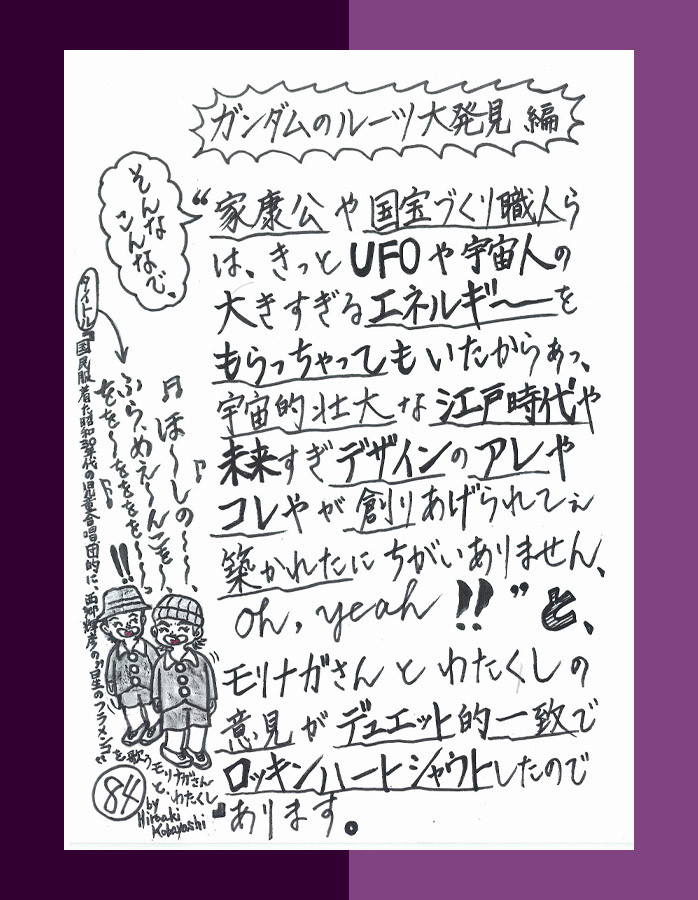 ガンダムのルーツ大発見 編
そんな
こんなで、
“家康公や国宝づくり職人ら
は、きっとUFOや宇宙人の
大きすぎるエネルギ〜を
もらっちゃってもいたからぁっ、
宇宙的壮大な江戸時代や
未来すぎデザインのアレや
コレやが創りあげられてぇ
築かれたにちがいありません、
oh, yeah!!”と、
モリナガさんとわたくしの
意見がデュエット的一致で
ロッキンハートシャウトしたので
あります。
♬ほ〜しの〜〜、
ふら、めえ〜んこを〜
をを〜をををを〜〜!!
タイトル『国民服着た昭和30年代の児童合唱団的に、西郷輝彦の“星のフラメンコ”
を歌うモリナガさん
と、わたくし』
84
by
Hiroaki
Kobayashi